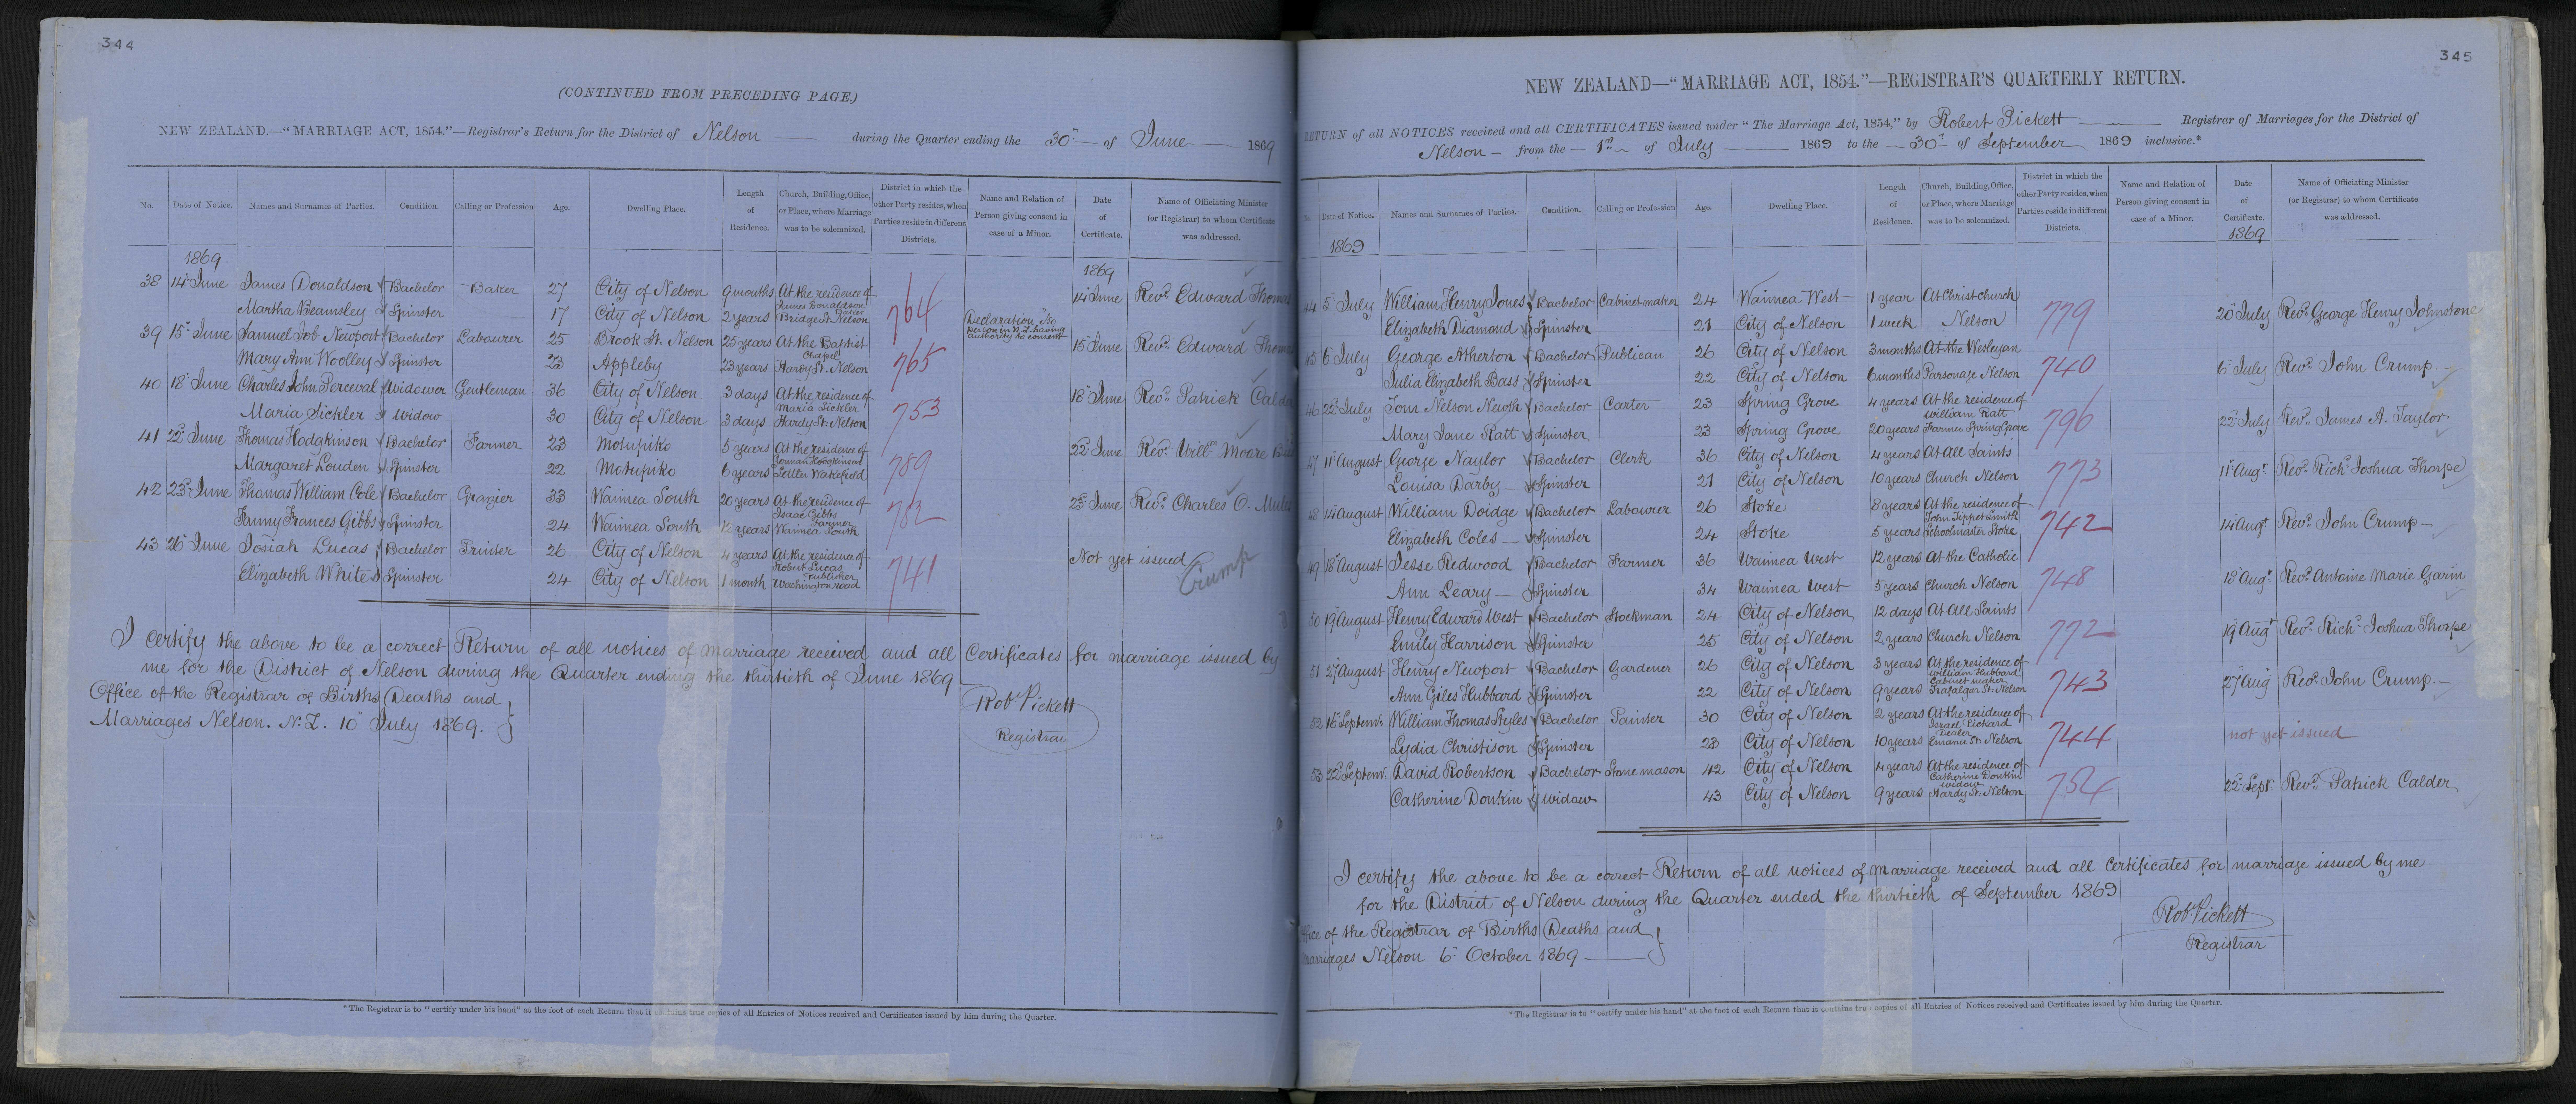 344
(CONTINUED FROM PRECEDING PAGE.)
NEW ZEALAND.—"MARRIAGE ACT, 1854."—Registrar's Return for the District of Nelson during the Quarter ending the 30th of June 1869
No. Date of Notice. Names and Surnames of Parties. Condition. Calling or Profession Age. Dwelling Place. Length of Residence. Church, Building, Office, or Place, where Marriage was to be solemnized. District in which the other Party resides, when Parties reside in different Districts. Name and Relation of Person giving consent in case of a Minor. Date of Certificate. Name of Officiating Minister (or Registrar) to whom Certificate was addressed.
1869 1869
38 14th June James Donaldson Bachelor Baker 27 City of Nelson 9 months At the residence of James Donaldson Baker 764 14th June Revd. Edward Thomas
Martha Beamsley Spinster 17 City of Nelson 2 years Bridge St. Nelson Declaration "No person in N.Z. having authority to consent"
39 15th June Samuel Job Newport Bachelor Labourer 25 Brook St. Nelson 25 years At the Baptist Chapel 765 15th June Revd. Edward Thomas
Mary Ann Woolley Spinster 23 Appleby 23 years Hardy St. Nelson
40 18th June Charles John Perceval Widower Gentleman 36 City of Nelson 3 days At the residence of Maria Sickler 753 18th June Revd. Patrick Calder
Maria Sickler Widow 30 City of Nelson 3 days Hardy St. Nelson
41 22d June Thomas Hodgkinson Bachelor Farmer 23 Motupiko 5 years At the residence of German Hodgkinson 789 22d June Revd. Willm Moore
Margaret Louden Spinster 22 Motupiko 6 years Settler Wakefield
42 23d June Thomas William Cole Bachelor Grazier 33 Waimea South 20 years At the residence of Isaac Gibbs Farmer 782 23d June Revd. Charles O. Mules
Fanny Frances Gibbs Spinster 24 Waimea South 12 years Waimea South
43 26th June Josiah Lucas Bachelor Printer 26 City of Nelson 4 years At the residence of Robert Lucas Publisher 741 Not yet issued Crump
Elizabeth White Spinster 24 City of Nelson 1 month Washington road
I certify the above to be a correct Return of all notices of marriage received and all Certificates for marriage issued by
me for the District of Nelson during the Quarter ending the thirtieth of June 1869
Office of the Registrar of Births Deaths and
Marriages Nelson. N.Z. 10th July 1869.
Robt. Pickett
Registrar
*The Registrar is to "certify under his hand" at the foot of each Return that it contains true copies of all Entries of Notices received and Certificates issued by him during the Quarter.
345
NEW ZEALAND—"MARRIAGE ACT, 1854."—REGISTRAR'S QUARTERLY RETURN.
RETURN of all NOTICES received and all CERTIFICATES issued under "The Marriage Act, 1854," by Robert Pickett Registrar of Marriages for the District of
Nelson from the 1st of July 1869 to the 30th of September 1869 inclusive.*
No. Date of Notice. Names and Surnames of Parties. Condition. Calling or Profession Age. Dwelling Place. Length of Residence. Church, Building, Office, or Place, where Marriage was to be solemnized. District in which the other Party resides, when Parties reside in different Districts. Name and Relation of Person giving consent in case of a Minor. Date of Certificate. Name of Officiating Minister (or Registrar) to whom Certificate was addressed.
1869 1869
44 5th July William Henry Jones Bachelor Cabinet maker 24 Waimea West 1 year At Christchurch 779 20th July Revd. George Henry Johnstone
Elizabeth Diamond Spinster 21 City of Nelson 1 week Nelson
45 6th July George Atherton Bachelor Publican 26 City of Nelson 3 months At the Wesleyan 740 6th July Revd. John Crump.
Julia Elizabeth Bass Spinster 22 City of Nelson 6 months Parsonage Nelson
46 22d July Tom Nelson Newth Bachelor Carter 23 Spring Grove 4 years At the residence of William Ratt 796 22d July Revd. James A. Taylor
Mary Jane Ratt Spinster 23 Spring Grove 20 years Farmer Spring Grove
47 11th August George Naylor Bachelor Clerk 36 City of Nelson 4 years At All Saints 773 11th Augt. Revd. Richd. Joshua Thorpe
Louisa Darby Spinster 21 City of Nelson 10 years Church Nelson
48 14th August William Doidge Bachelor Labourer 26 Stoke 8 years At the residence of John Tippet Smith 742 14th Augt. Revd. John Crump
Elizabeth Coles Spinster 24 Stoke 5 years Schoolmaster Stoke
49 18th August Jesse Redwood Bachelor Farmer 36 Waimea West 12 years At the Catholic 748 18th Augt. Revd. Antoine Marie Garin
Ann Leary Spinster 34 Waimea West 5 years Church Nelson
50 19th August Henry Edward West Bachelor Stockman 24 City of Nelson 12 days At All Saints 772 19th Augt. Revd. Richd. Joshua Thorpe
Emily Harrison Spinster 25 City of Nelson 2 years Church Nelson
51 27th August Henry Newport Bachelor Gardener 26 City of Nelson 3 years At the residence of William Hubbard Cabinet maker 743 27th Aug Revd. John Crump.
Ann Giles Hubbard Spinster 22 City of Nelson 9 years Trafalgar St. Nelson
52 16th Septemr. William Thomas Styles Bachelor Painter 30 City of Nelson 2 years At the residence of Israel Pickard Dealer 744 not yet issued
Lydia Christison Spinster 23 City of Nelson 10 years Emanu St. Nelson
53 22d Septemr. David Robertson Bachelor Stone mason 42 City of Nelson 4 years At the residence of Catherine Donkin widow 754 22d Sept. Revd. Patrick Calder
Catherine Donkin Widow 43 City of Nelson 9 years Hardy St. Nelson
I certify the above to be a correct Return of all notices of marriage received and all Certificates for marriage issued by me
for the District of Nelson during the Quarter ended the thirtieth of September 1869
Office of the Registrar of Births Deaths and
Marriages Nelson 6th October 1869
Robt. Pickett
Registrar
*The Registrar is to "certify under his hand" at the foot of each Return that it contains true copies of all Entries of Notices received and Certificates issued by him during the Quarter.